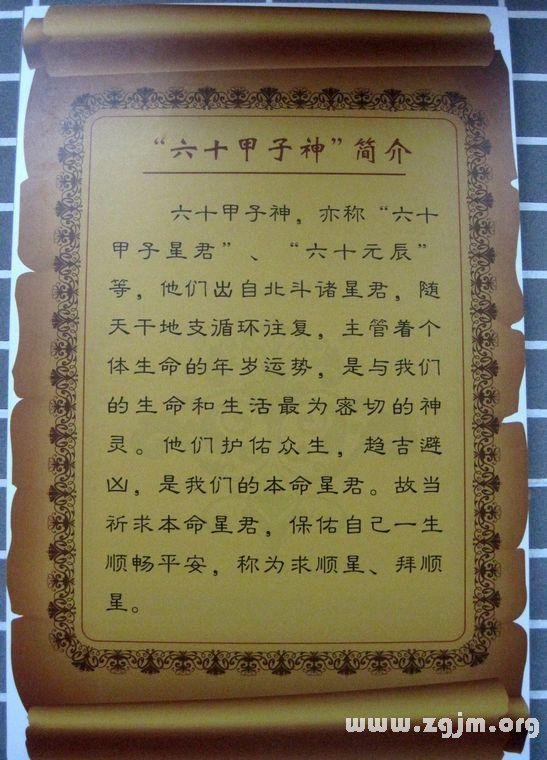 “六十甲子神”简介
六十甲子神，亦称“六十
甲子星君”、“六十元辰”
等，他们出自北斗诸星君，随
天干地支循环往复，主管着个
体生命的年岁运势，是与我们
的生命和生活最为密切的神
灵。他们护佑众生，趋吉避
凶，是我们的本命星君。故当
祈求本命星君，保佑自己一生
顺畅平安，称为求顺星、拜顺
星。
www.zgjm.org